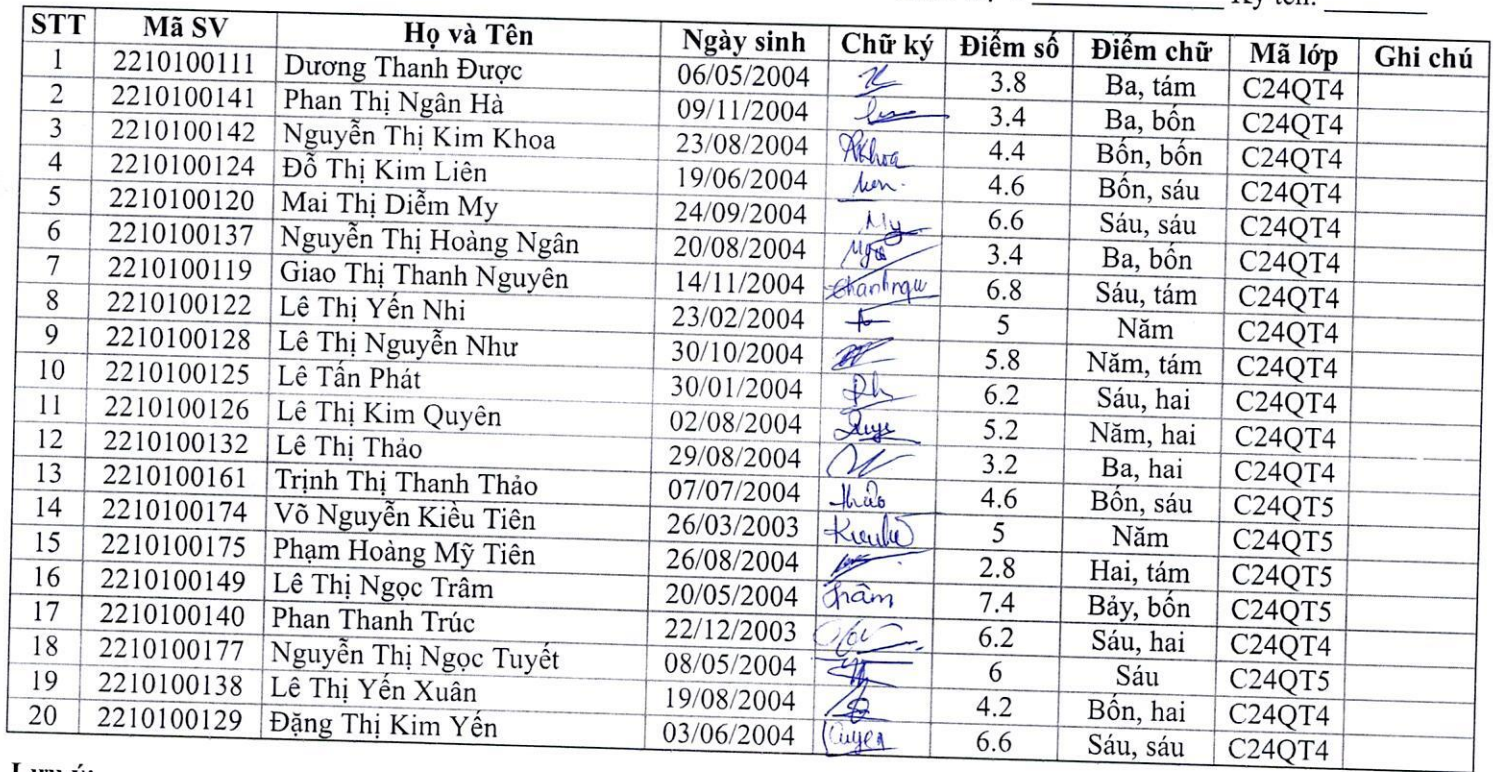 Ký tên:
STT Mã SV Họ và Tên Ngày sinh Chữ ký Điểm số Điểm chữ Mã lớp Ghi chú
1 2210100111 Dương Thanh Được 06/05/2004 3.8 Ba, tám C24QT4
2 2210100141 Phan Thị Ngân Hà 09/11/2004 3.4 Ba, bốn C24QT4
3 2210100142 Nguyễn Thị Kim Khoa 23/08/2004 Khoa 4.4 Bốn, bốn C24QT4
4 2210100124 Đỗ Thị Kim Liên 19/06/2004 4.6 Bốn, sáu C24QT4
5 2210100120 Mai Thị Diễm My 24/09/2004 My 6.6 Sáu, sáu C24QT4
6 2210100137 Nguyễn Thị Hoàng Ngân 20/08/2004 3.4 Ba, bốn C24QT4
7 2210100119 Giao Thị Thanh Nguyên 14/11/2004 6.8 Sáu, tám C24QT4
8 2210100122 Lê Thị Yến Nhi 23/02/2004 5 Năm C24QT4
9 2210100128 Lê Thị Nguyễn Như 30/10/2004 5.8 Năm, tám C24QT4
10 2210100125 Lê Tấn Phát 30/01/2004 Ph 6.2 Sáu, hai C24QT4
11 2210100126 Lê Thị Kim Quyên 02/08/2004 5.2 Năm, hai C24QT4
12 2210100132 Lê Thị Thảo 29/08/2004 3.2 Ba, hai C24QT4
13 2210100161 Trịnh Thị Thanh Thảo 07/07/2004 thảo 4.6 Bốn, sáu C24QT5
14 2210100174 Võ Nguyễn Kiều Tiên 26/03/2003 5 Năm C24QT5
15 2210100175 Phạm Hoàng Mỹ Tiên 26/08/2004 2.8 Hai, tám C24QT5
16 2210100149 Lê Thị Ngọc Trâm 20/05/2004 Trâm 7.4 Bảy, bốn C24QT5
17 2210100140 Phan Thanh Trúc 22/12/2003 6.2 Sáu, hai C24QT4
18 2210100177 Nguyễn Thị Ngọc Tuyết 08/05/2004 6 Sáu C24QT5
19 2210100138 Lê Thị Yến Xuân 19/08/2004 4.2 Bốn, hai C24QT4
20 2210100129 Đặng Thị Kim Yến 03/06/2004 6.6 Sáu, sáu C24QT4